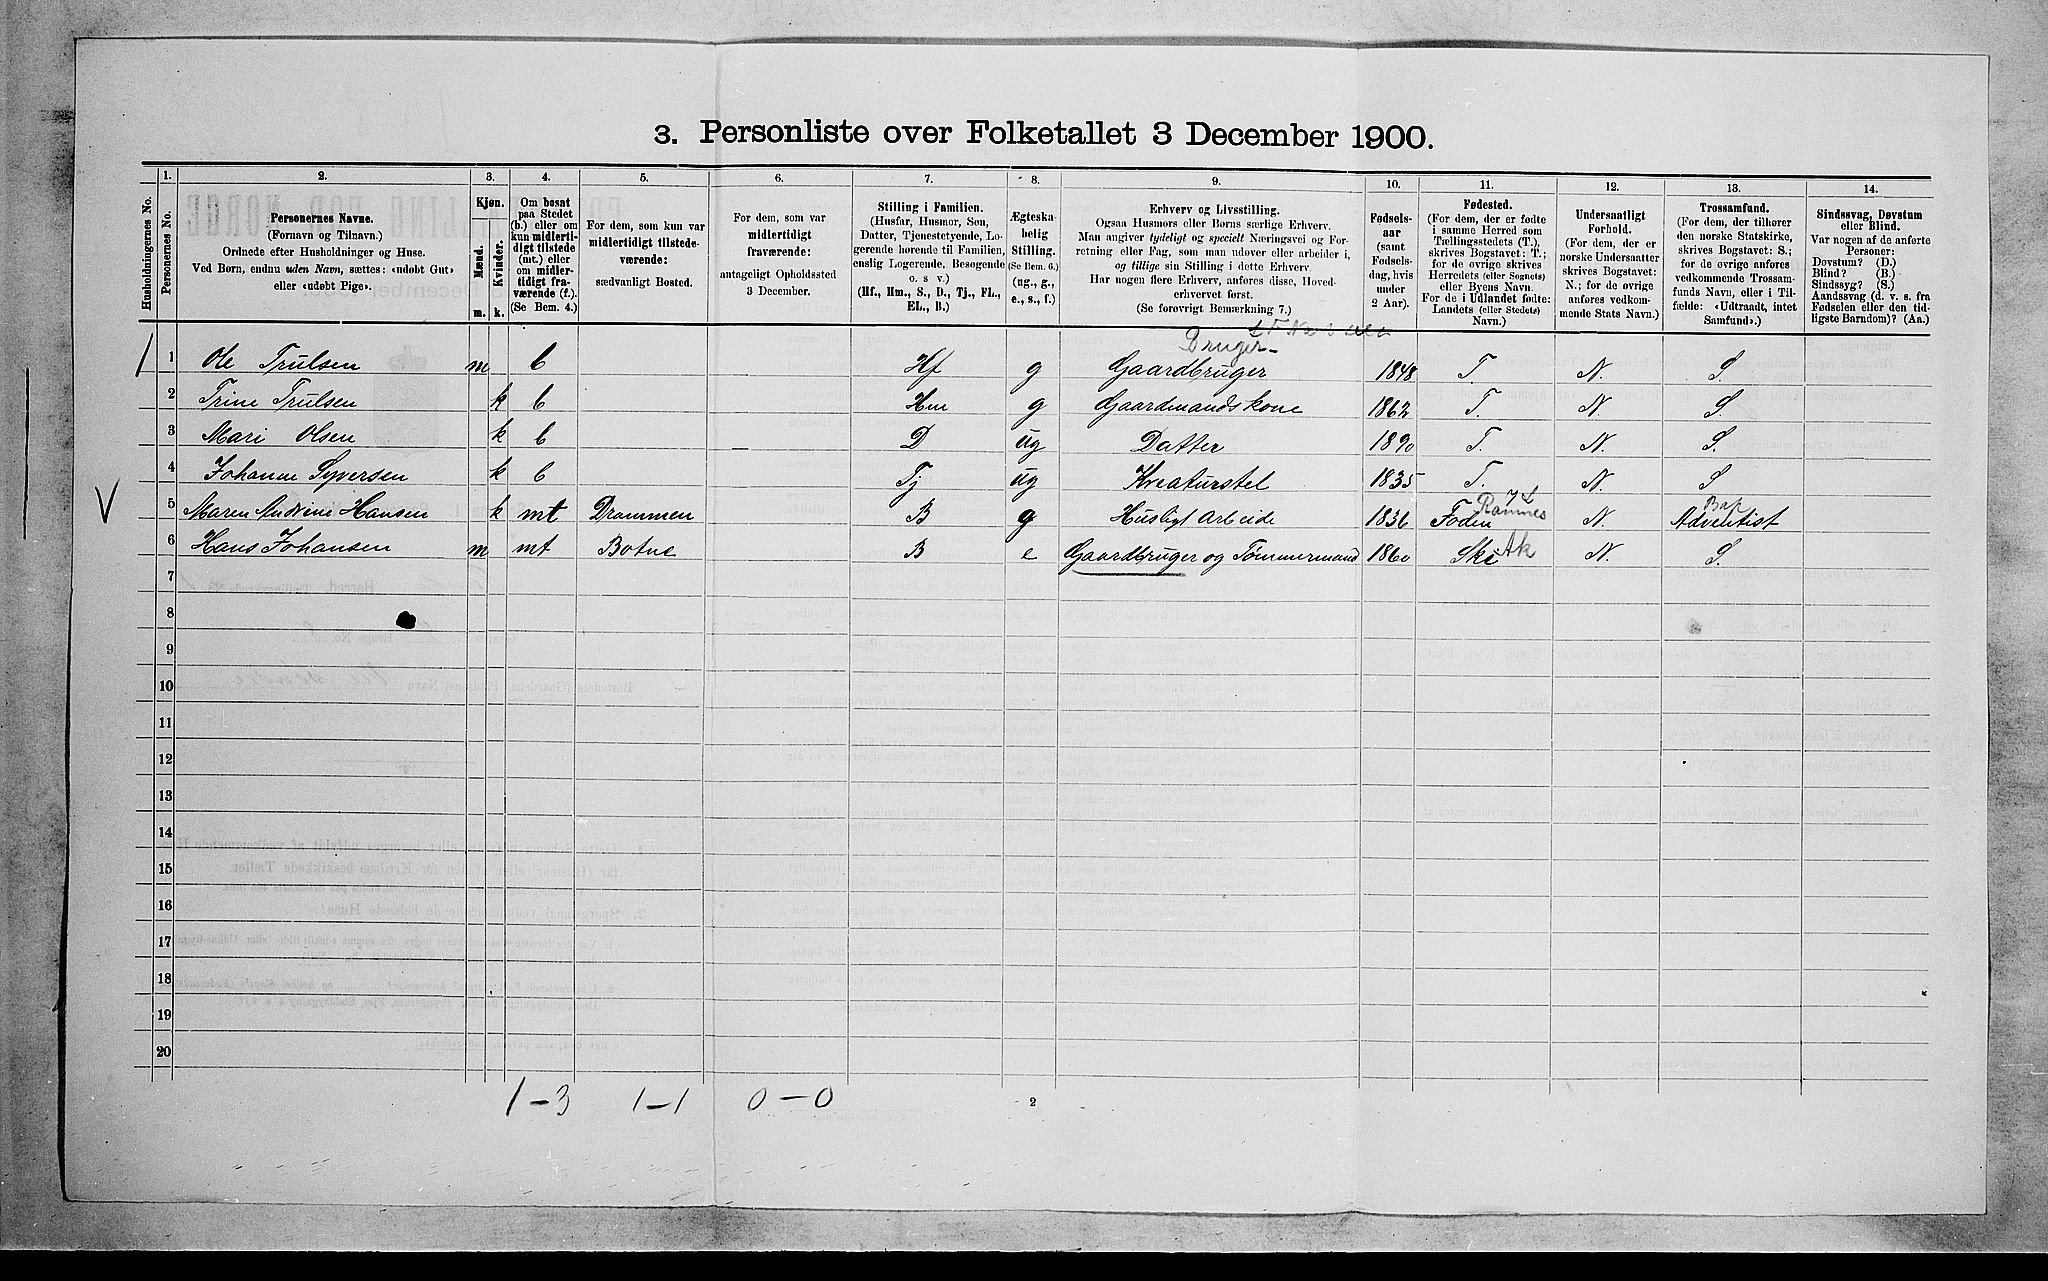 3. Personliste over Folketallet 3 December 1900.
Husholdningernes No.
1. Personernes No.
2. Personernes Navne. (Fornavn og Tilnavn.) Ordnede efter Husholdninger og Huse. Ved Børn, endnu uden Navn, sættes: «udobt Gut» eller «udøbt Pige».
3. Kjøn. Mænd. m. Kvinder. k.
4. Om bosat paa Stedet (b.) eller om kun midlertidigt tilstede (mt.) eller om midlertidigt fraværende (f.). (Se Bem. 4.)
5. For dem, som kun var midlertidigt tilstedeværende: sædvanligt Bosted.
6. For dem, som var midlertidigt fraværende: antageligt Opholdssted 3 December.
7. Stilling i Familien. (Husfar, Husmor, Søn, Datter, Tjenestetyende, Logerende hørende til Familien, enslig Logerende, Besøgende o. s. v.) (Hf., Hm., S., D., Tj., FL., EL., B.)
8. Ægteskabelig Stilling. (Se Bem. 6.) (ug., g., e., s., f.)
9. Erhverv og Livsstilling. Ogsaa Husmors eller Børns særlige Erhverv. Man angiver tydeligt og specielt Næringsvei og Forretning eller Fag, som man udøver eller arbeider i, og tillige sin Stilling i dette Erhverv. Har nogen flere Erhverv, anføres disse, Hovederhvervet først. (Se forøvrigt Bemærkning 7.)
10. Fødselsaar (samt Fødselsdag, hvis under 2 Aar).
11. Fødested. (For dem, der er fødte i samme Herred som Tællingsstedets (T.), skrives Bogstavet: T.; for de øvrige skrives Herredets (eller Sognets) eller Byens Navn. For de i Udlandet fødte: Landets (eller Stedets) Navn.)
12. Undersaatligt Forhold. (For dem, der er norske Undersaatter skrives Bogstavet: N.; for de øvrige anføres vedkommende Stats Navn.)
13. Trossamfund. (For dem, der tilhører den norske Statskirke, skrives Bogstavet: S.; for de øvrige anføres vedkommende Trossamfunds Navn, eller i Tilfælde: «Udtraadt, intet Samfund».)
14. Sindssvag, Døvstum eller Blind. Var nogen af de anførte Personer: Døvstum? (D.) Blind? (B.) Sindssyg? (S.) Aandssvag (d. v. s. fra Fødselen eller den tidligste Barndom)? (Aa.)
Bruger
1 1 Ole Trulsen m b Hf g Gaardbruger 1848 T. N. S.
2 Trine Trulsen k b Hm g Gaardmandskone 1862 T. N. S.
3 Mari Olsen k b D ug Datter 1890 T. N. S.
4 Johanne Syversen k b Tj ug Kreaturstel 1835 T. N. S
V 5 Maren Andrine Hansen k mt Drammen B g Husligt Arbeide 1836 Foden Ramnes N. Adventist Bap
6 Hans Johansen m mt Botne B e Gaardbruger og Tømmermand 1860 Ski Ak N. S.
7
8
9
10
11
12
13
14
15
16
17
18
19
20
1 – 3 1 – 1 0 – 0
2